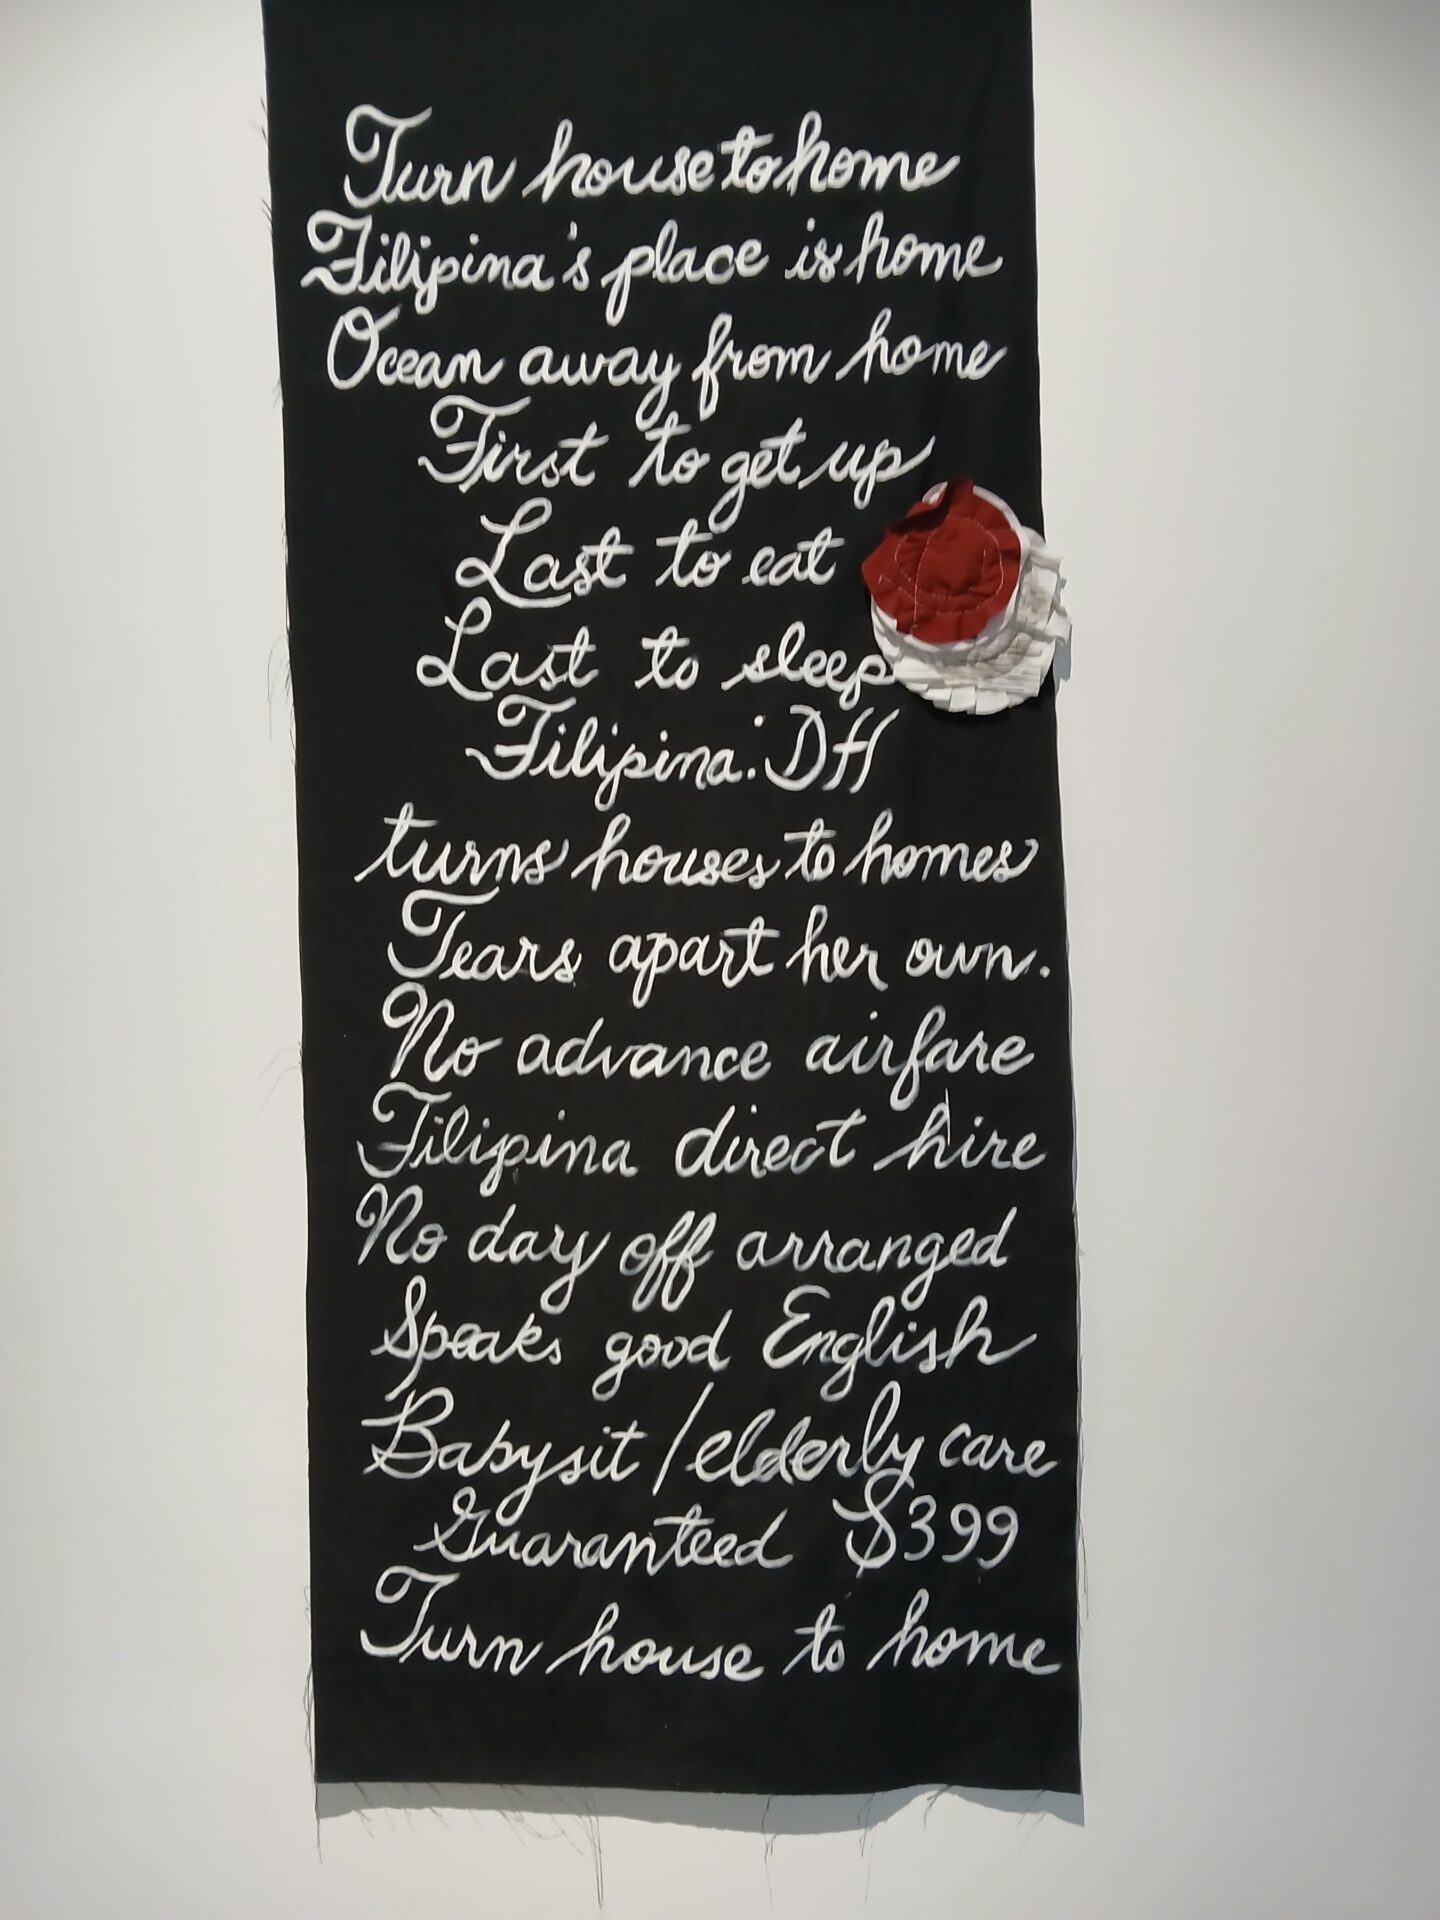 Turn house to home
Filipina's place is home
Ocean away from home
First to get up
Last to eat
Last to sleep
Filipina: DH
turns houses to homes
Tears apart her own.
No advance airfare
Filipina direct hire
No day off arranged
Speaks good English
Babysit/elderly care
Guaranteed $399
Turn house to home